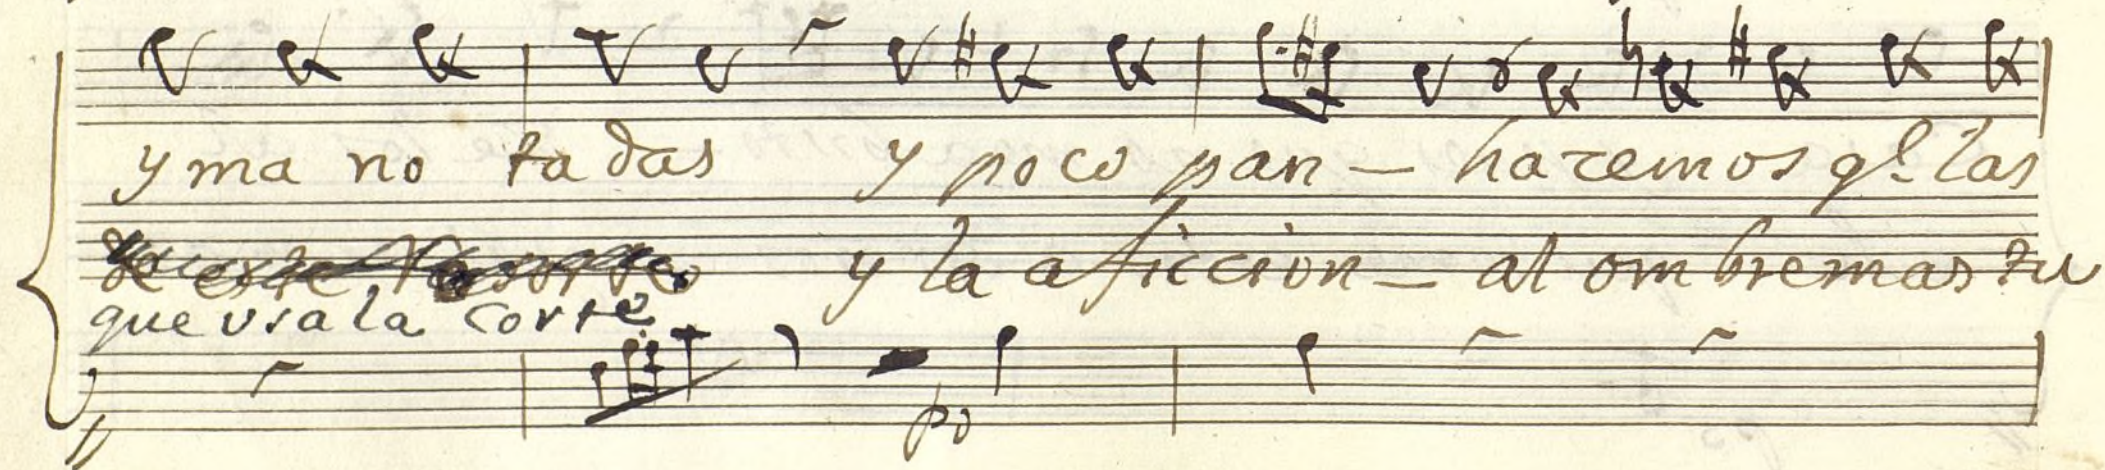 y ma no ta das y poco pan - hacemos qe. las
y la aficcion - al ombre mas tu
que usa la Corte
po